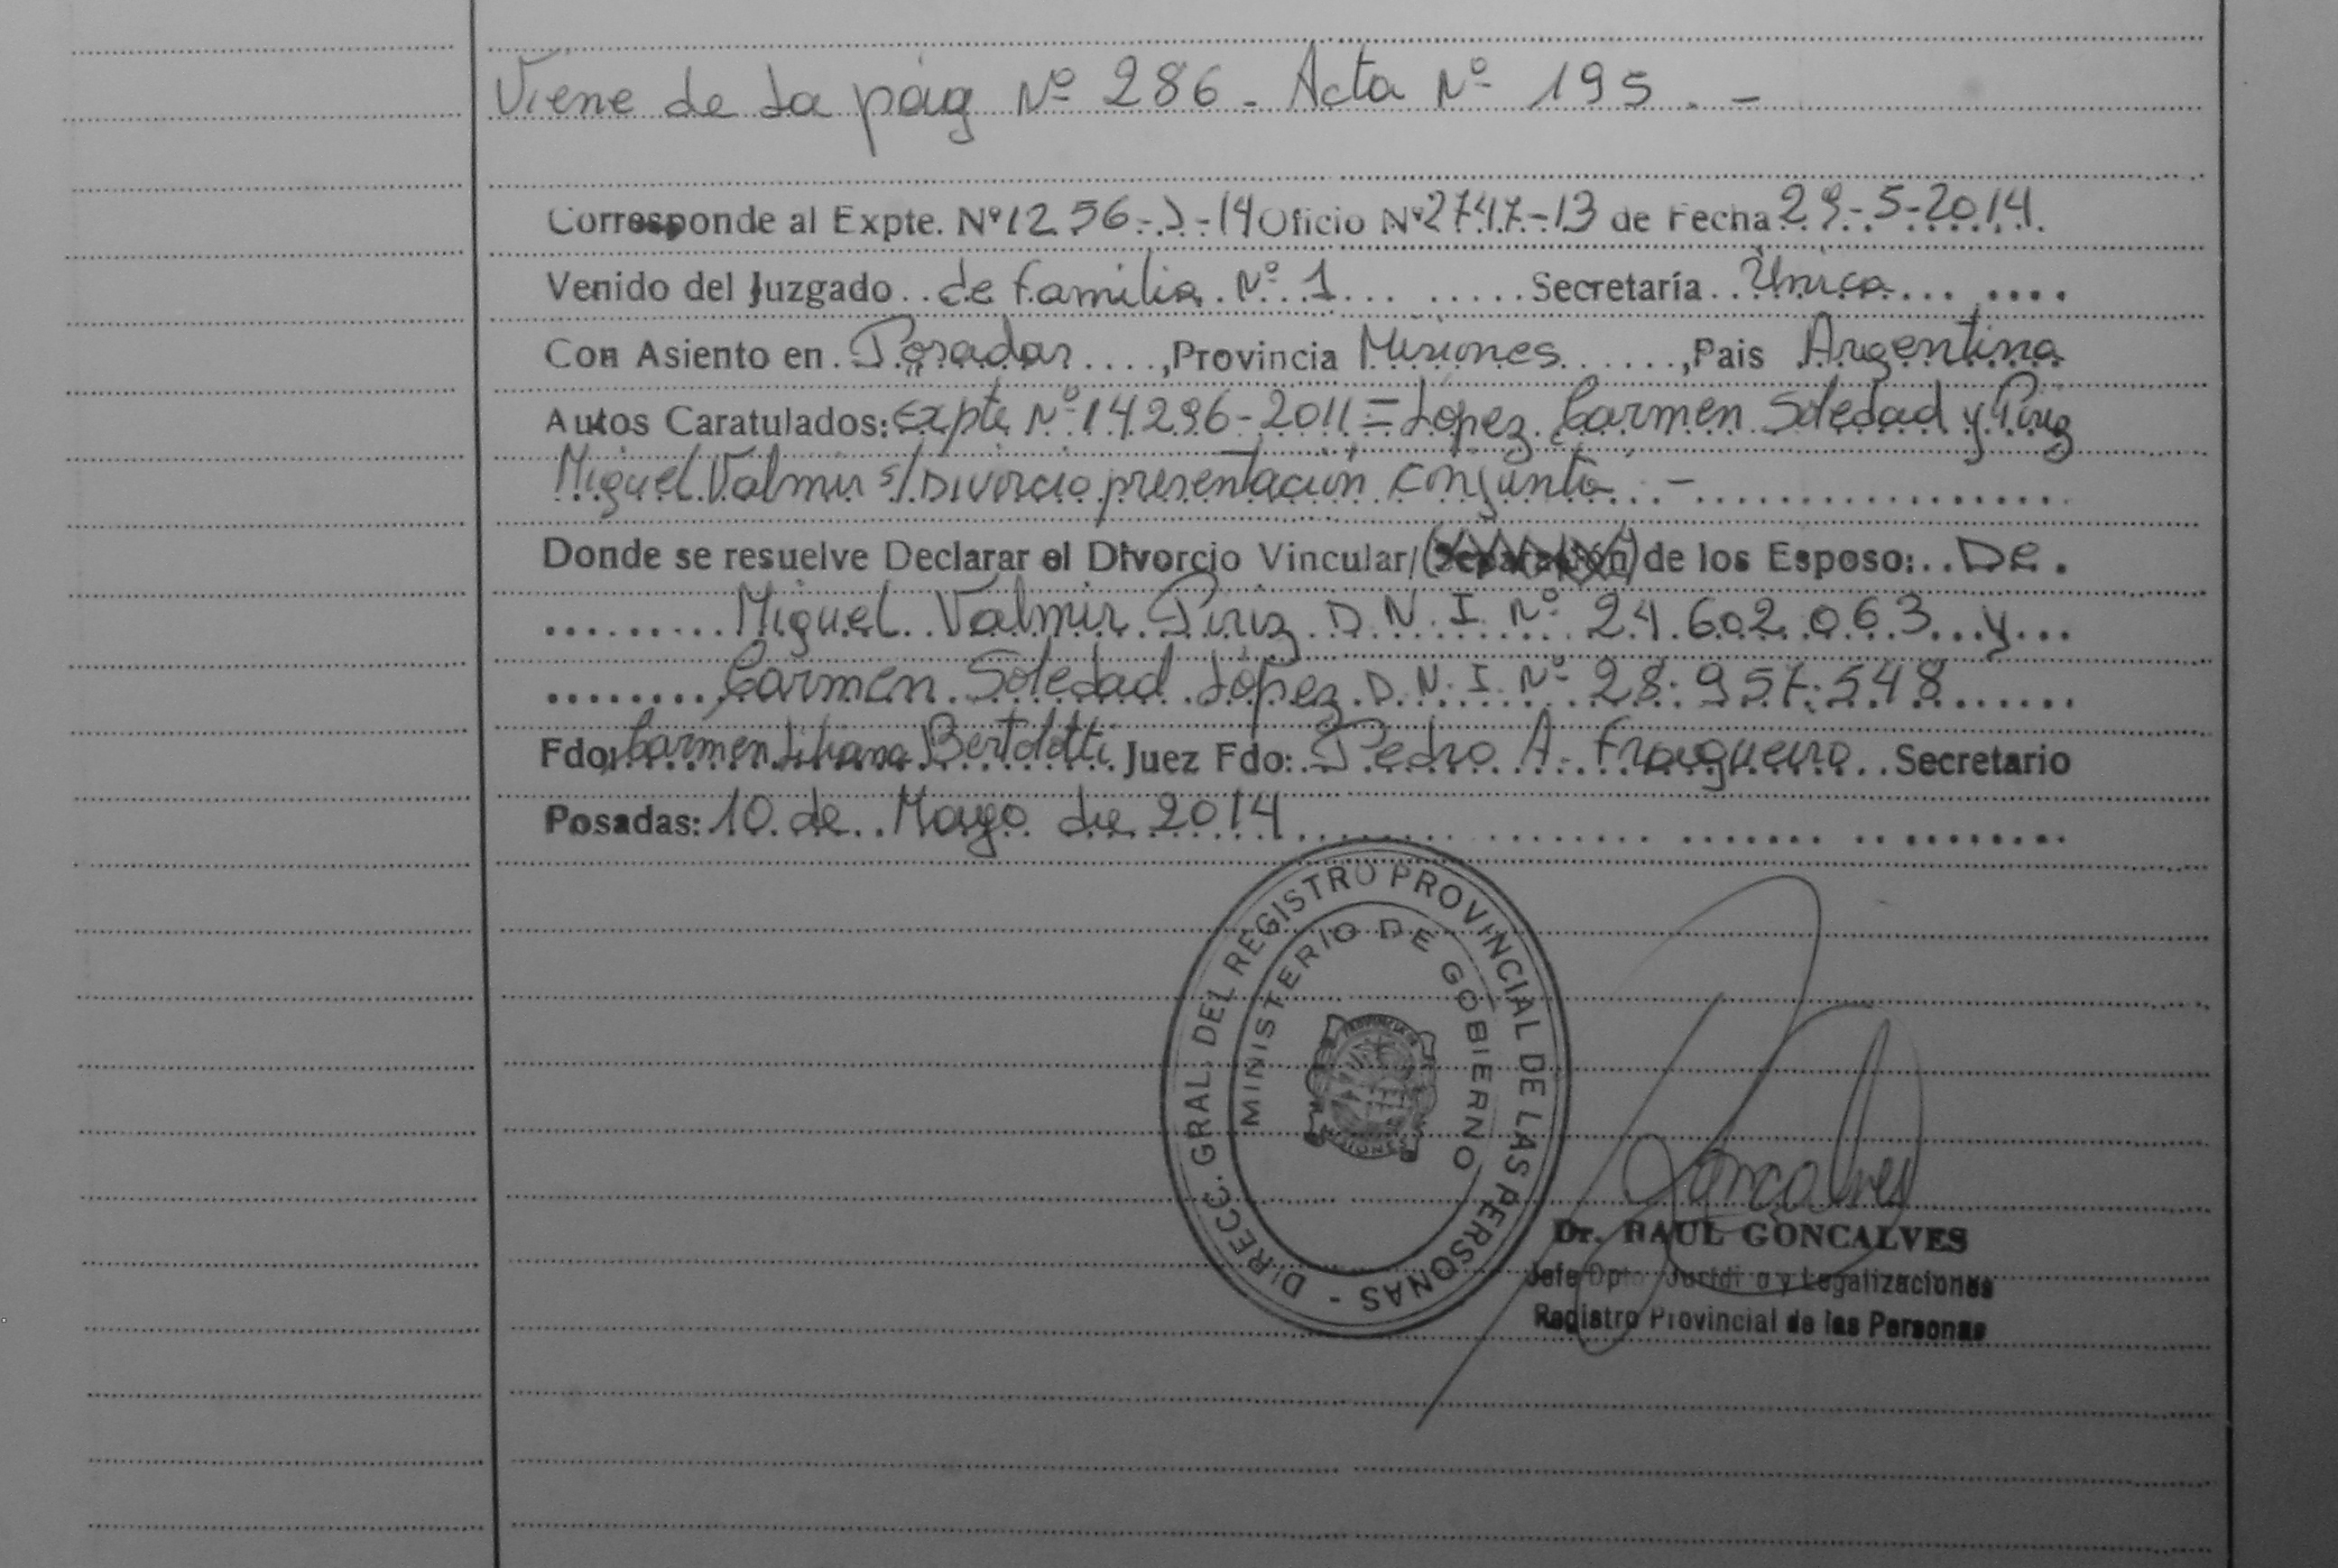 Viene de la pág Nº 286 - Acta Nº 195 . -
Corresponde al Expte. Nº 1256-J-14 Oficio Nº 2747-13 de Fecha 29-5-2014.
Venido del Juzgado de Familia Nº 1 Secretaría Única
Con Asiento en Posadas, Provincia Misiones, Pais Argentina
Autos Caratulados: Expte Nº 14296-2011 = López Carmen Soledad y Piriz
Miguel Valmir s/Divorcio presentación conjunta -
Donde se resuelve Declarar el Divorcio Vincular/(Separación) de los Esposo: De
Miguel Valmir Piriz D.N.I. Nº 24.602.063 y
Carmen Soledad López D.N.I. Nº 28.957.548
Fdo: Carmen Liliana Bertolotti Juez Fdo: Pedro A. Fragueiro Secretario
Posadas: 10 de Mayo de 2014
DIRECC. GRAL. DEL REGISTRO PROVINCIAL DE LAS PERSONAS -
MINISTERIO DE GOBIERNO
PROVINCIA DE
MISIONES
Goncalves
Dr. RAUL GONCALVES
Jefe Dpto. Jurídico y Legalizaciones
Registro Provincial de las Personas